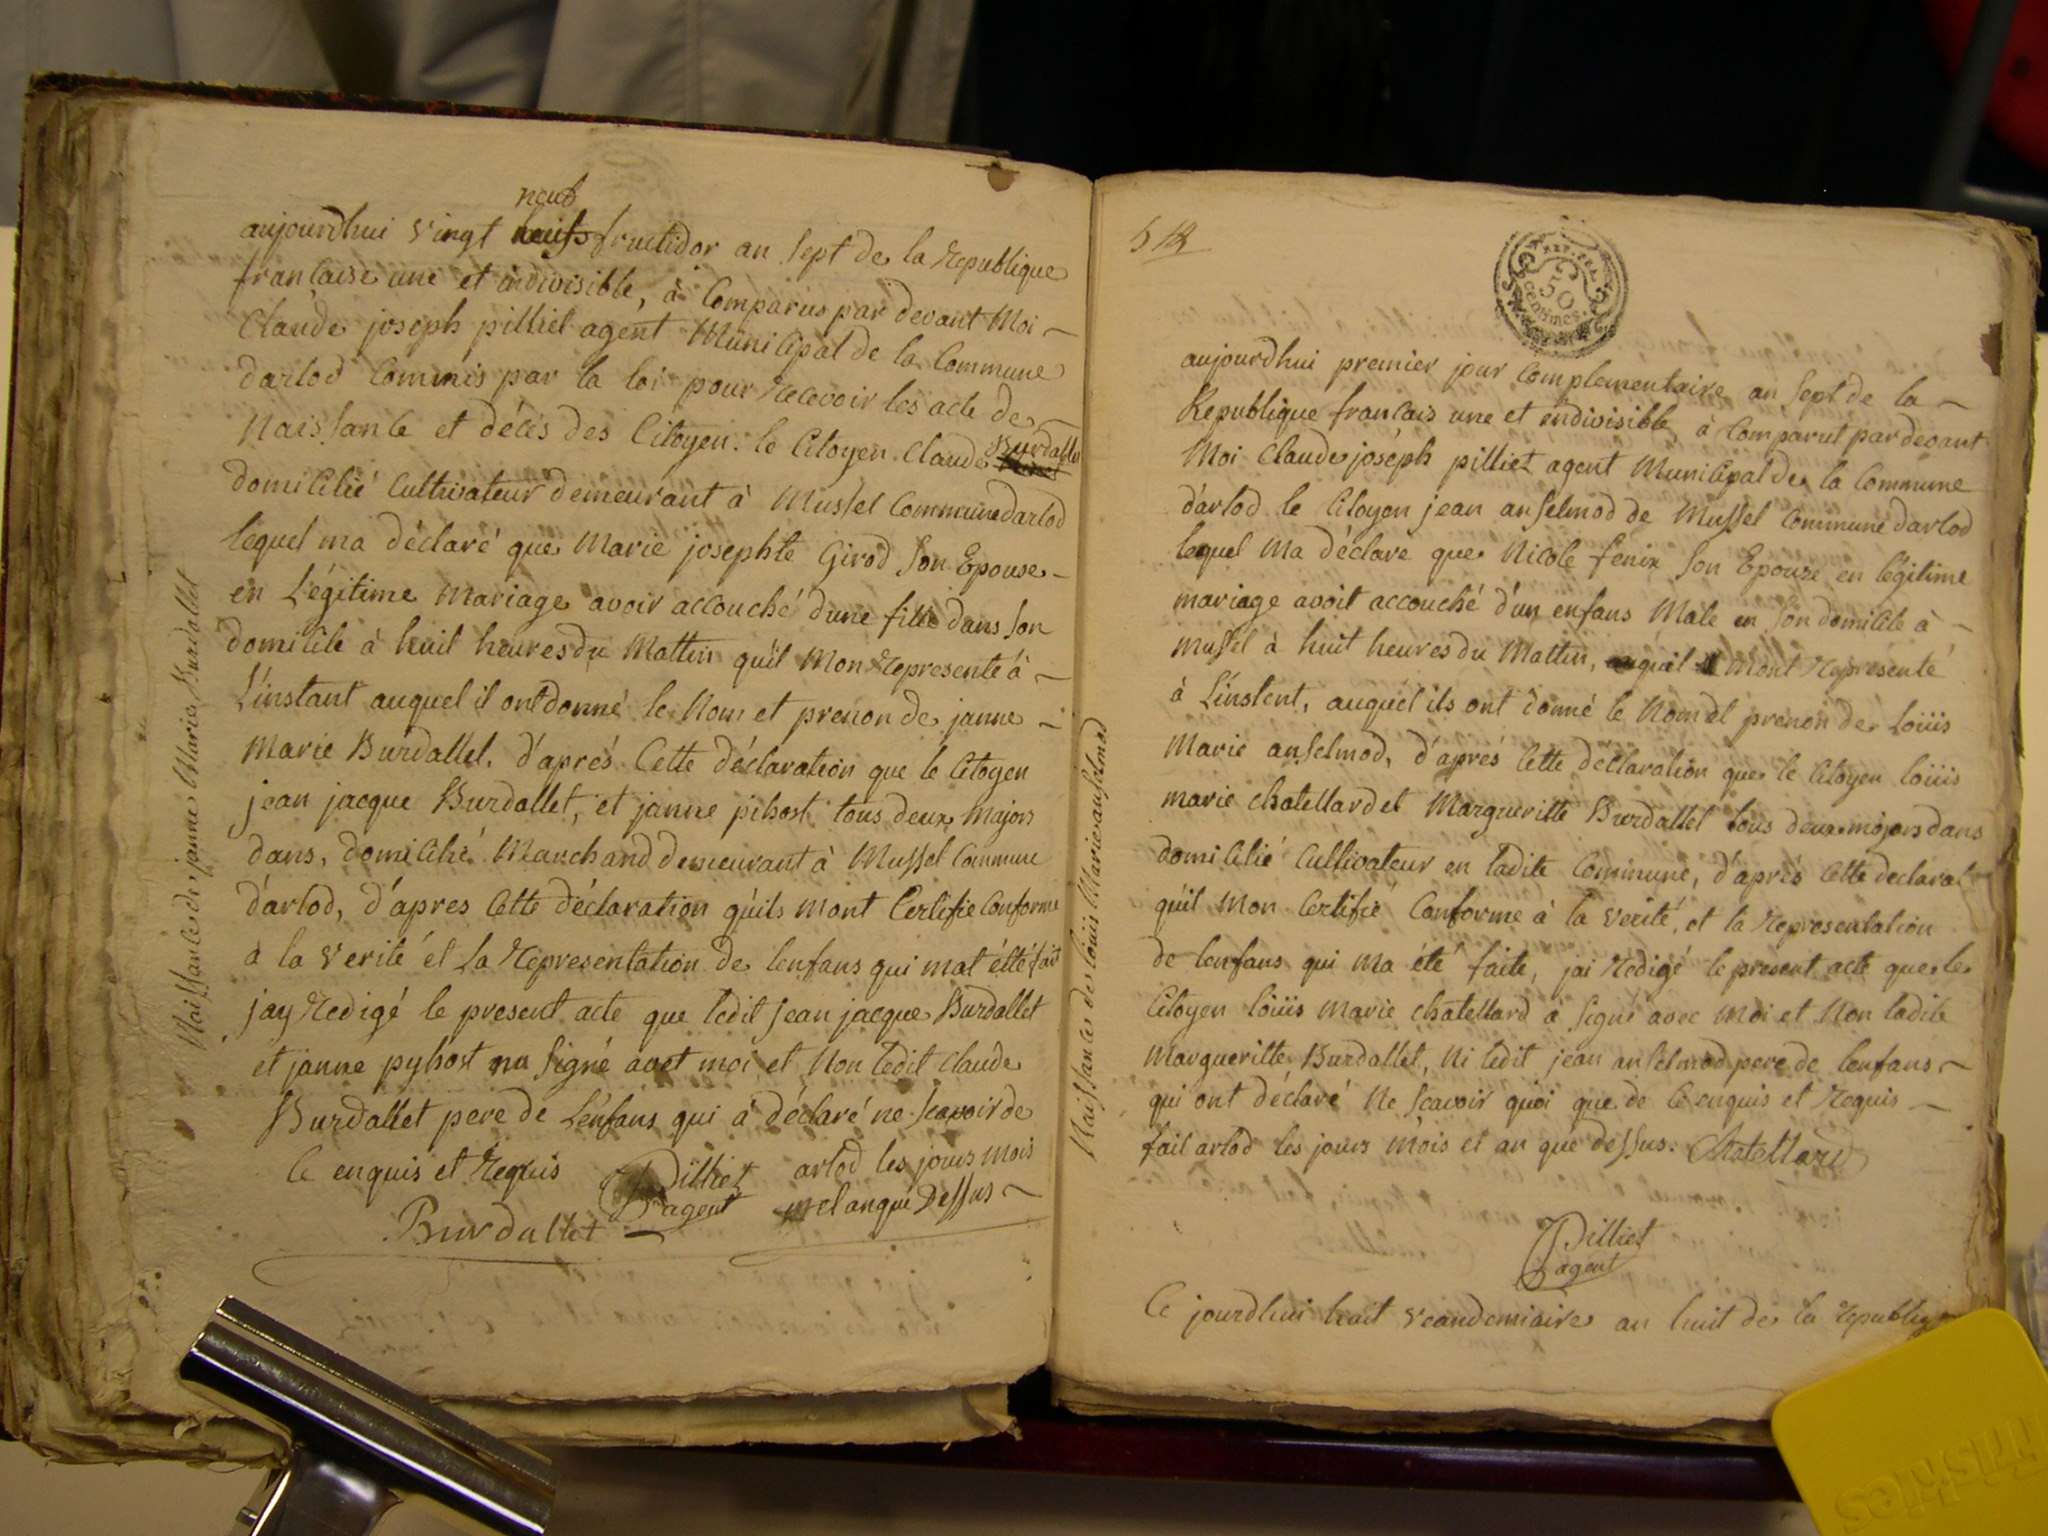 Naissance de janne Marie Burdallet
neuf
aujourdhui vingt fructidor an sept de la Republique
francaise une et indivisible, à Comparus par devant Moi
Claude joseph pilliet agent Municipal de la Commune
darlod Commis par la loi pour recevoir les acte de
Naissance et décés des Citoyen. le Citoyen Claude Burdallet
domicilié Cultivateur demeurant à Mussel Commune darlod
lequel ma déclaré que Marie josephte Girod son Epouse
en Légitime Mariage avoir accouché dune fille dans son
domicile à huit heures du Mattin qu'il Mon representé à
L'instant auquel il ont donné le Nom et prenon de janne
Marie Burdallet, d'aprés Cette déclaration que le Citoyen
jean jacque Burdallet, et janne pihost tous deux Majors
dans, domicilié Marchand demeurant à Mussel Commune
d'arlod, d'apres Cette déclaration qu'ils mont Certifie Conforme
a la verité et la Representation de lenfans qui mat étté fait
jay redigé le present acte que ledit jean jacque Burdallet
et janne pyhost signé avet moi et Non ledit Claude
Burdallet pere de L'enfans qui à déclaré ne scavoir de
Ce enquis et requis arlod les jours mois
et an que Dessus
Pilliet
agent
Burdallet
51
50
centimes
Naissance de loüis Marie anselmod
aujourdhui premier jour Complementaire an sept de la
Republique francais une et indivisible à Comparut par devant
Moi Claude joséph pilliet agent Municipal de la Commune
d'arlod le Citoyen jean anselmod de Mussel Commune darlod
lequel Ma déclaré que Nicole fenix son Epouze en légitime
mariage avoit accouché d'un enfans Male en son domicile à
mussel à huit heures du Mattin, quil Mont Representé
à L'instent, auquel ils ont donné le Nom et prenon de Loüis
Marie anselmod, d'aprés Cette déclaration que le Citoyen loüis
marie chatellard et Margueritte Burdallet tous deux majors dans
domicilié Cultivateur en ladite Commune, d'aprés Cette declarat
qu'il Mon Certifié Conforme à la verité, et la Representation
de lenfans qui Ma été faite, jai redigé le present acte que le
Citoyen loüis Marie chatellard à signé avec Moi et Non ladite
Margueritte Burdallet, Ni ledit jean anselmod pere de lenfans
qui ont déclaré Ne scavoir quoi que de Ce enquis et Requis
fait arlod les jours Mois et an que dessus. Chatellard
Pilliet
agent
Ce jourdhui huit veandemiaire an huit de la republiq